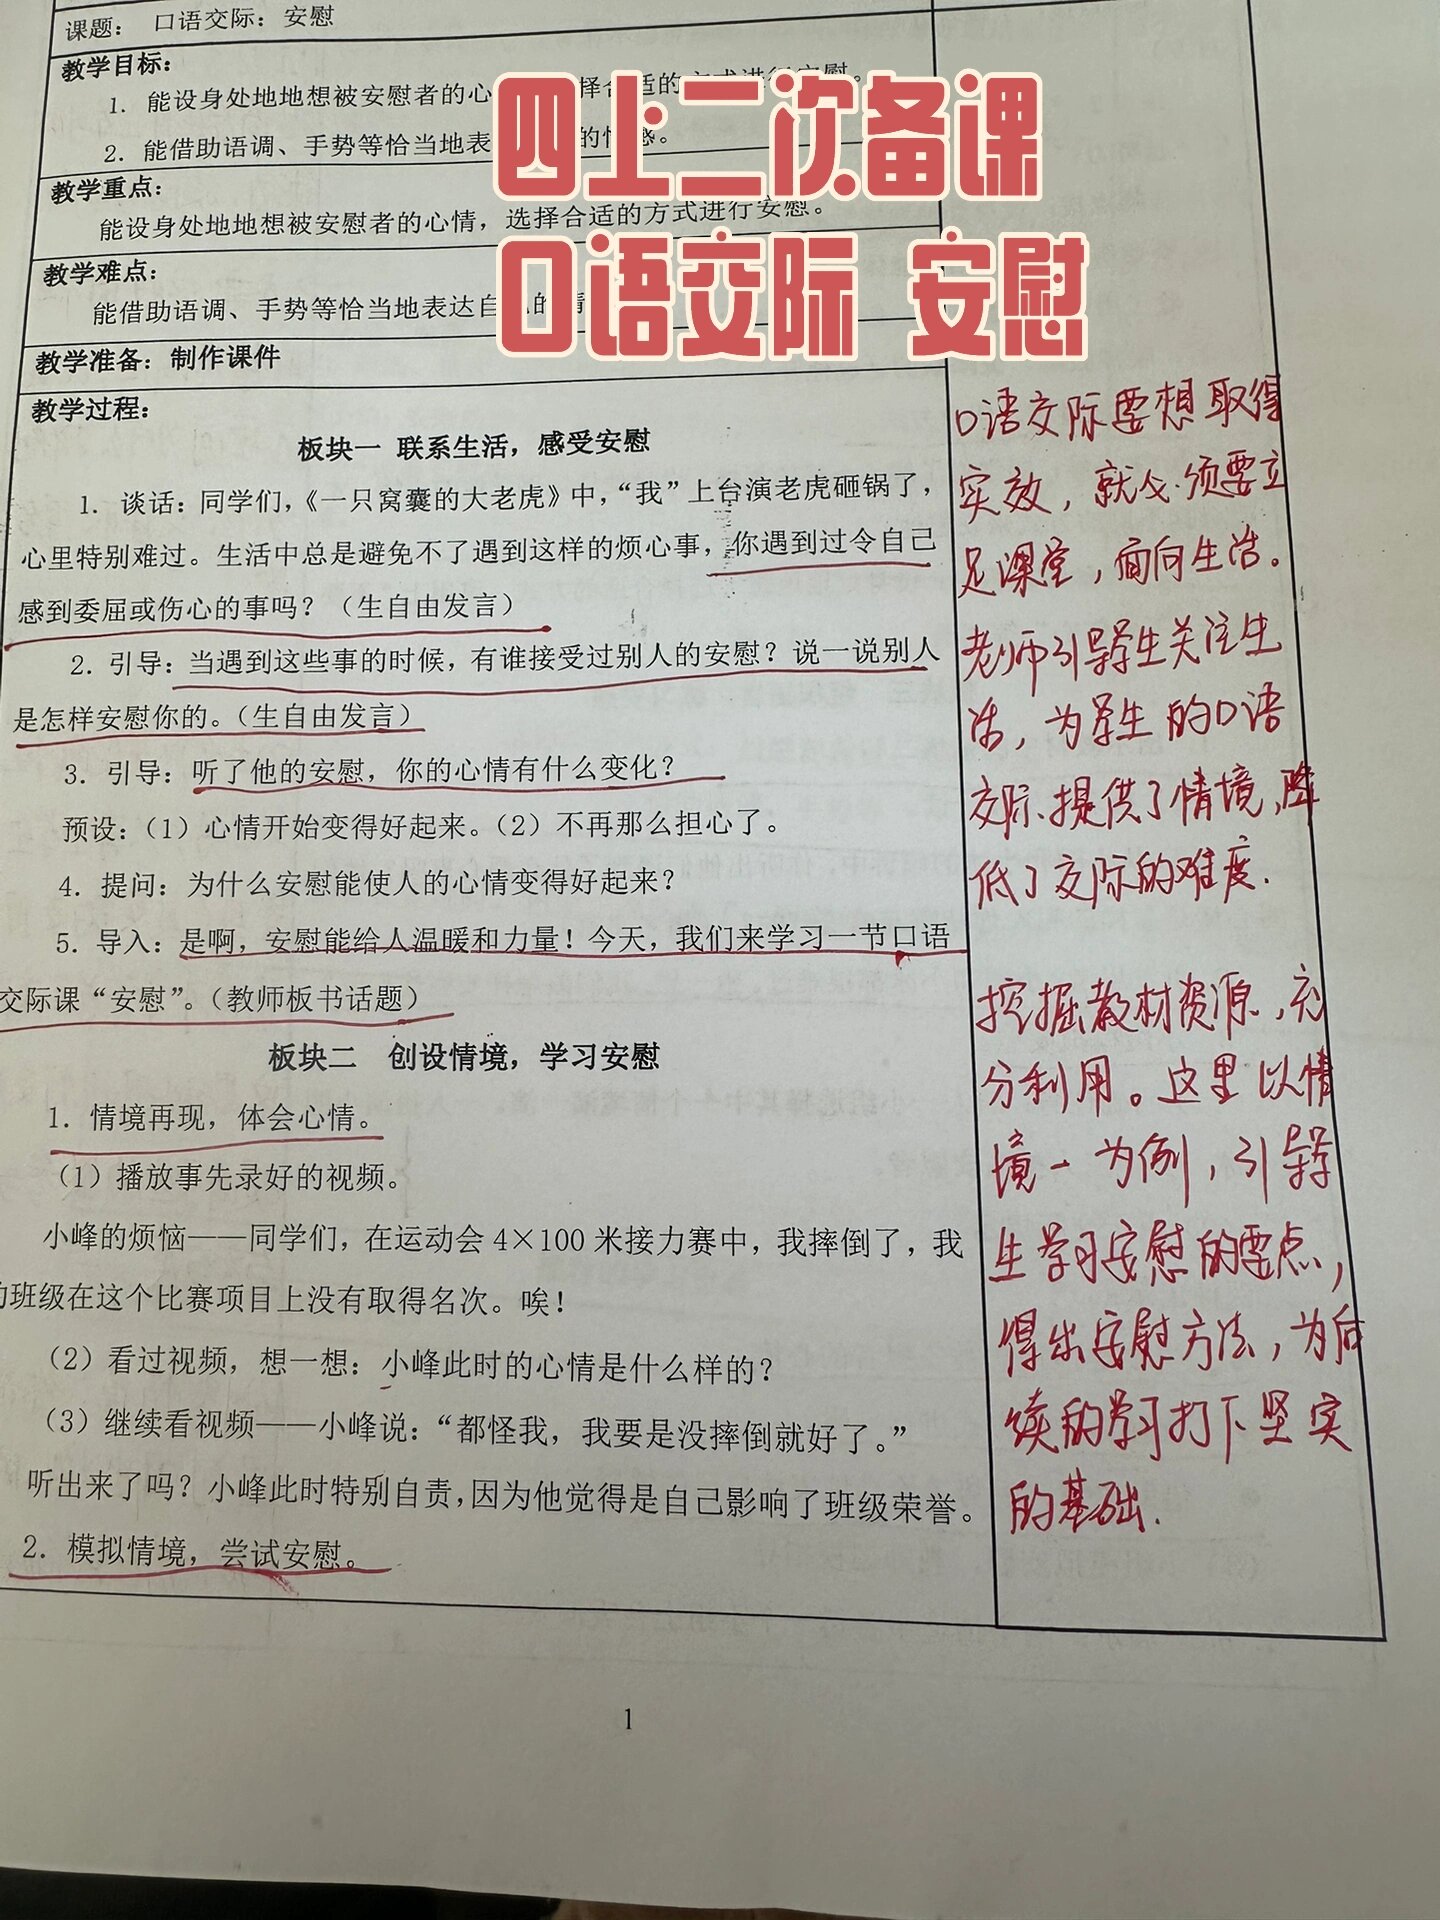 课题： 口语交际：安慰
教学目标：
1. 能设身处地地想被安慰者的心 择合适的方式进行安慰。
2. 能借助语调、手势等恰当地表 的情感。
教学重点：
能设身处地地想被安慰者的心情，选择合适的方式进行安慰。
教学难点：
能借助语调、手势等恰当地表达自 的情
教学准备：制作课件
教学过程：
板块一 联系生活，感受安慰
1. 谈话：同学们，《一只窝囊的大老虎》中，“我”上台演老虎砸锅了，
心里特别难过。生活中总是避免不了遇到这样的烦心事，你遇到过令自己
感到委屈或伤心的事吗？（生自由发言）
2. 引导：当遇到这些事的时候，有谁接受过别人的安慰？说一说别人
是怎样安慰你的。（生自由发言）
3. 引导：听了他的安慰，你的心情有什么变化？
预设：（1）心情开始变得好起来。（2）不再那么担心了。
4. 提问：为什么安慰能使人的心情变得好起来？
5. 导入：是啊，安慰能给人温暖和力量！今天，我们来学习一节口语
交际课“安慰”。（教师板书话题）
板块二 创设情境，学习安慰
1. 情境再现，体会心情。
（1）播放事先录好的视频。
小峰的烦恼——同学们，在运动会 4×100 米接力赛中，我摔倒了，我
的班级在这个比赛项目上没有取得名次。唉！
（2）看过视频，想一想：小峰此时的心情是什么样的？
（3）继续看视频——小峰说：“都怪我，我要是没摔倒就好了。”
听出来了吗？小峰此时特别自责，因为他觉得是自己影响了班级荣誉。
2. 模拟情境，尝试安慰。
四上二次备课
口语交际 安慰
口语交际要想取得
实效，就必须要立
足课堂，面向生活。
老师引导学生关注生
活，为学生的口语
交际提供了情境，降
低了交际的难度.
挖掘教材资源，充
分利用。这里以情
境一为例，引导学
生学习安慰的要点，
得出安慰方法，为后
续的学习打下坚实
的基础.
1